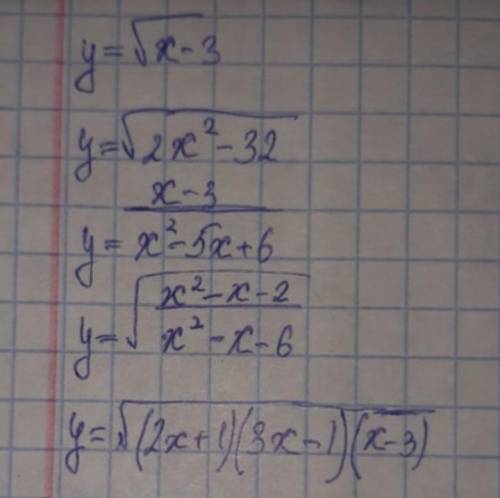 y = √x - 3
y = √2x² - 32
x - 3
y = x² - 5x + 6
x² - x - 2
y = √x² - x - 6
y = √(2x+1)(3x-1)(x-3)